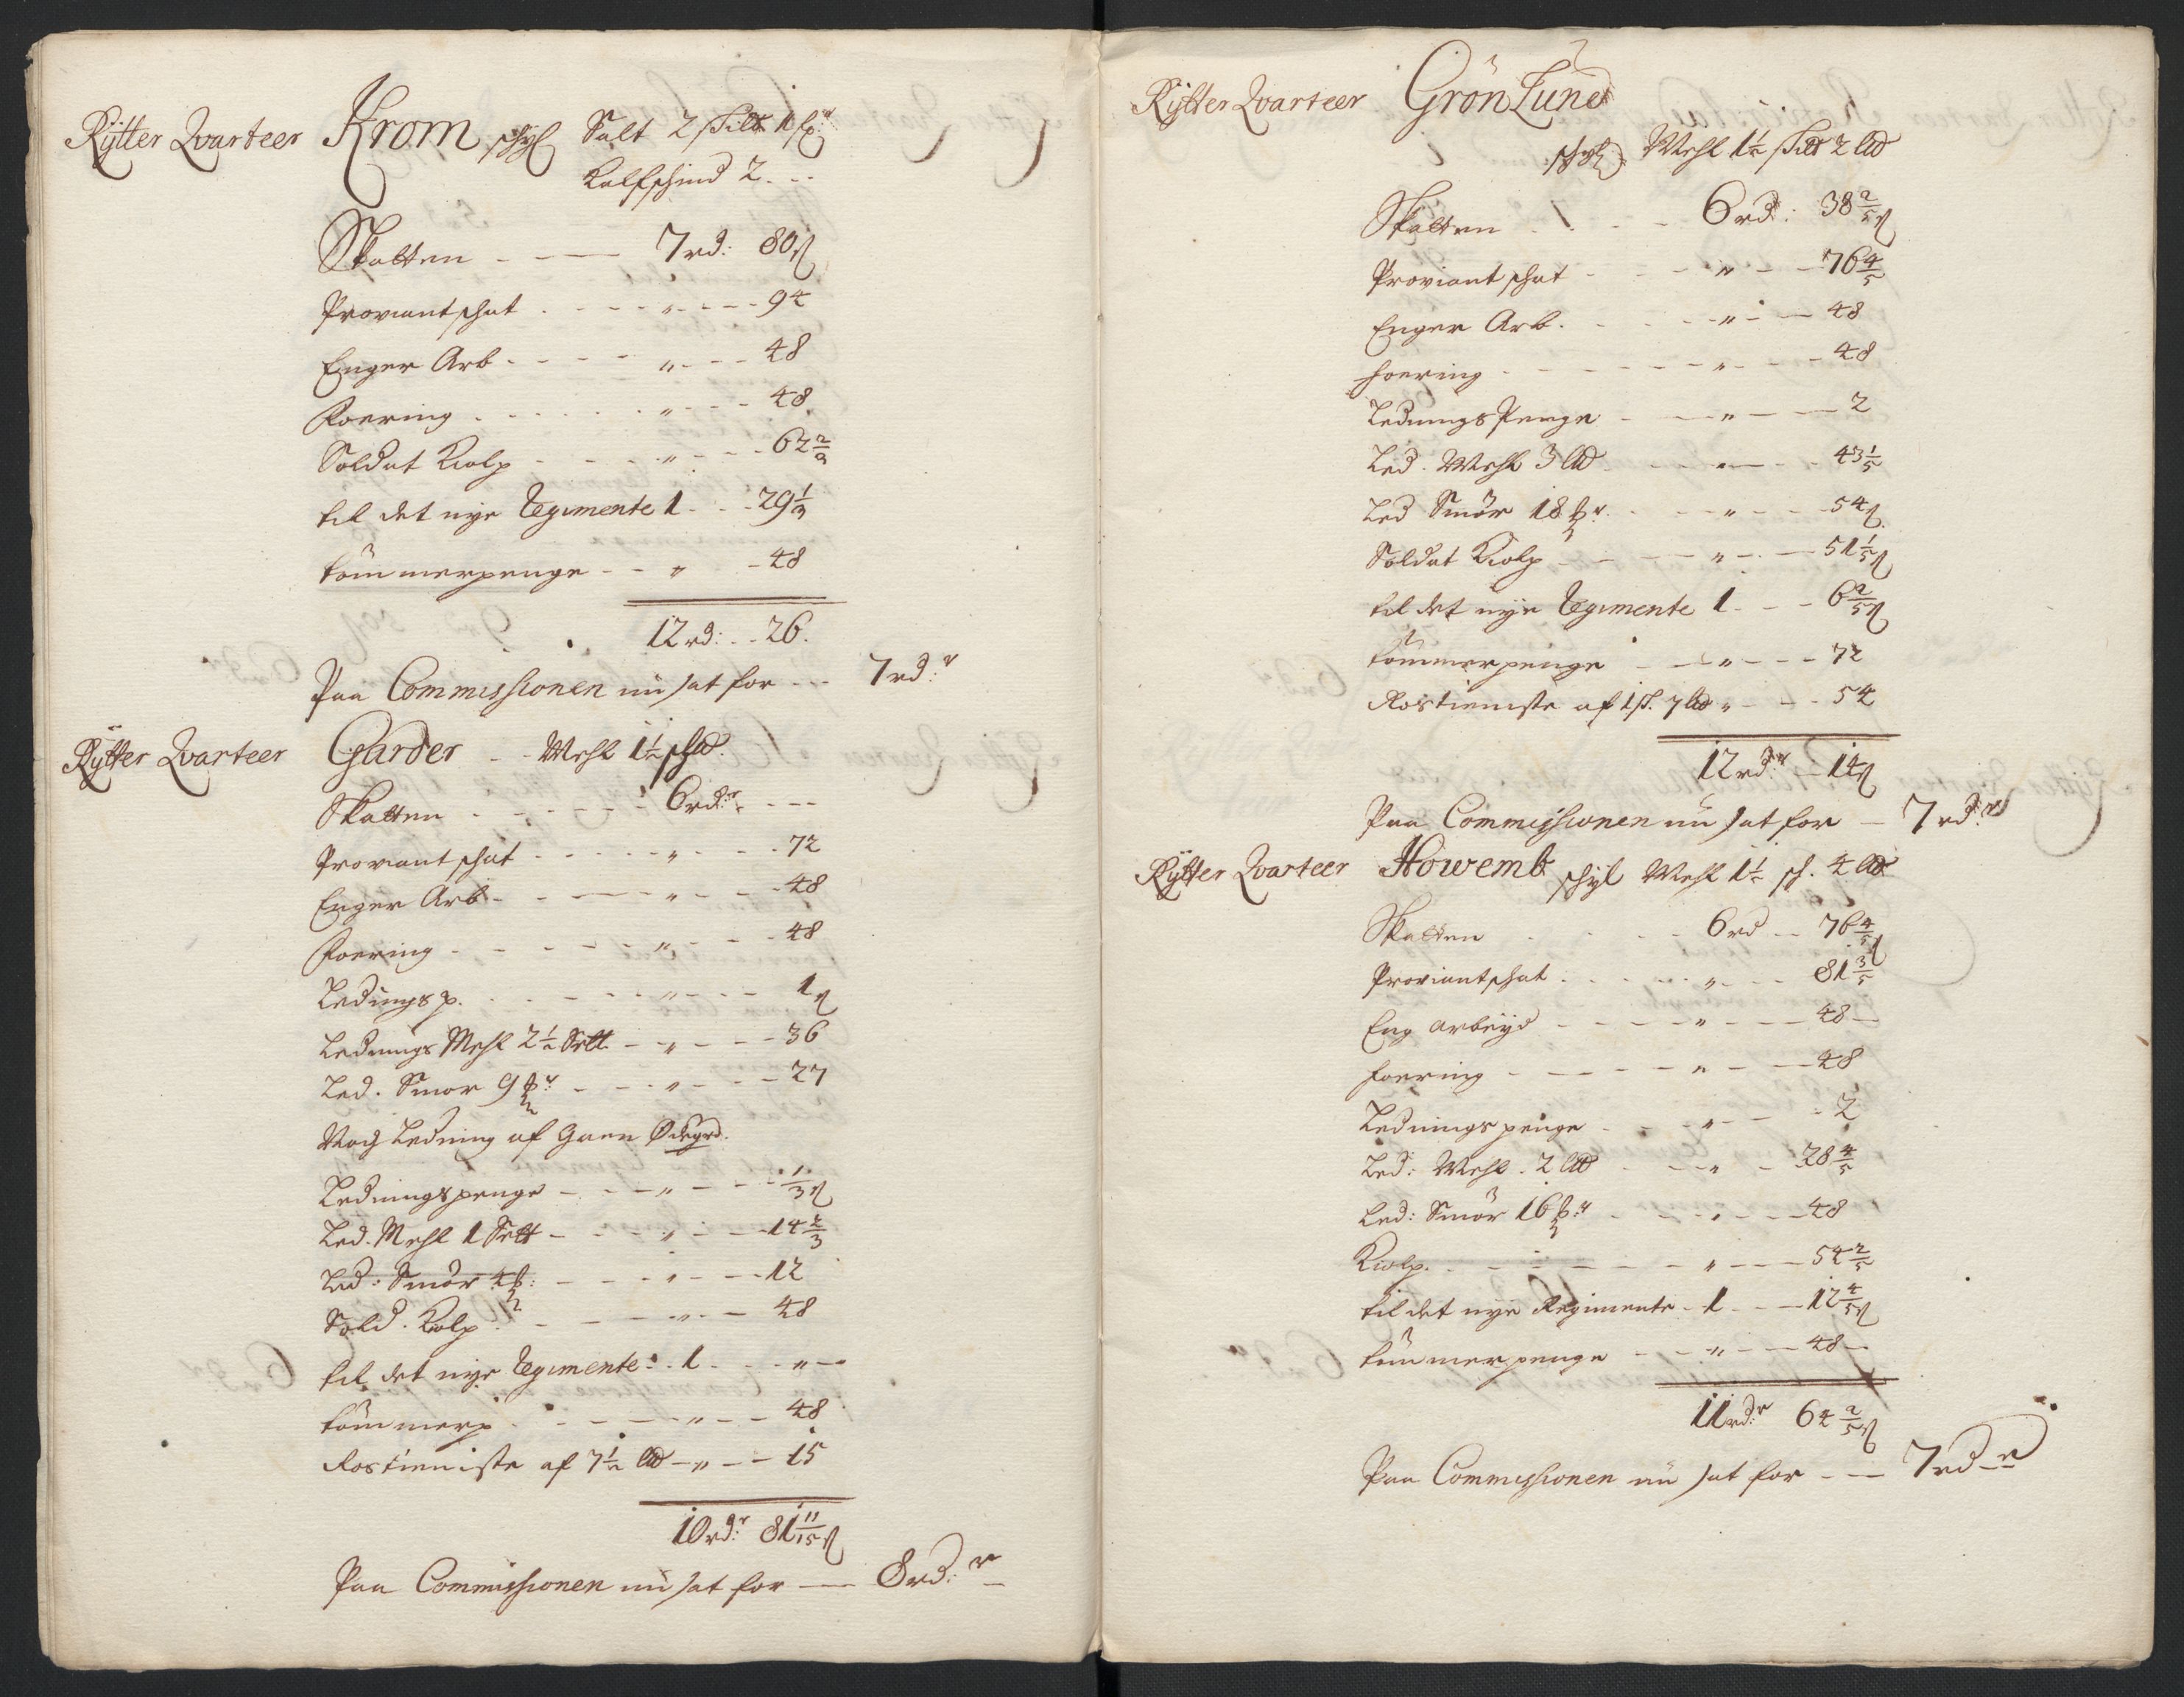 Rytter Qvarteer Krom schyl Salt 2 skild 1 fr
Kalfschind 2
Skatten 7 rd: 80 s
Proviantschat " 94
Enger Arb " 48
Foering " 48
Soldat Kiolp " 62 2/3
til det nye Regimente 1 29 1/3
tømmerpenge " 48
12 rd: 26
Paa Commissionen nu sat for 7 rd:r
Rytter Qvarteer Garder Mehl 1 1/2 schd.
Skatten 6 rd:r
Proviantschat " 72
Enger Arb " 48
Foering " 48
Ledings p. " 1 s
Lednings Mehl 2 1/2 Sett " 36
Led. Smør 9 " 27
Noch Ledning af Gaen Ødegrd.
Ledningspenge " 1/3 s
Led. Mehl 1 Sett " 14 2/3
Led: Smør 4 " 12
Sold. Kolp " 48
til det nye Regimente: 1 "
tømmerp " 48
Rostieniste af 7 1/2 lld " 15
10 rd:r 81 11/15 s
Paa Commissionen nu sat for 8 rd:r
Rytter Qvarteer Grøn Lund
schyl Mehl 1 1/2 skild 2 lld
Skatten 6 rd: 38 2/5 s
Proviant schat " 76 4/5
Enger Arb. " 48
foering " 48
Lednings Penge " 2
Led. Mehl 3 lld " 43 1/5
Led Smør 18 " 54 s
Soldat Kiolp " 51 1/5 s
til det nye Regimente 1 6 2/5 s
tømmerpenge " 72
Rostieniste af 1 s. 7 lld " 54
12 rd:r 14 s
Paa Commissionen nu sat for 7 rd:r
Rytter Qvarteer Howemb schyl Mehl 1 1/2 sch. 4 lld
Skatten 6 rd 76 4/5 s
Proviantschat " 81 3/5
Eng arbeyd " 48
foering " 48
Lednings penge " 2
Led: Mehl. 2 lld " 28 4/5
Led: Smør 16 " 48
Kiolp. " 54 2/5
til det nye Regimente 1 12 4/5 s
tømmerpenge " 48
11 rd:r 64 2/5 s
Paa Commissionen nu sat for 7 rd r